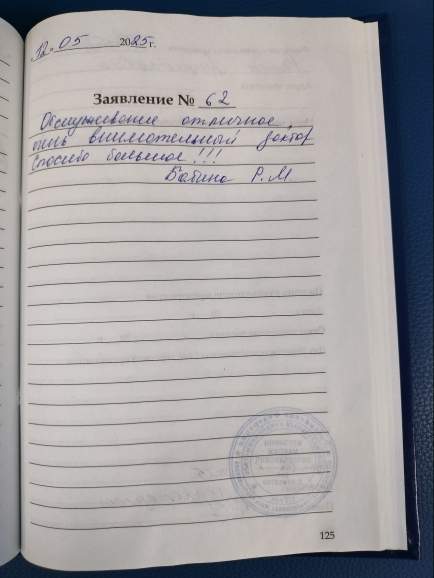 12.05 2025 г.
Заявление № 62
Обслуживание отличное,
очень внимательный доктор
Спасибо большое!!!
Бабина Р.М
125